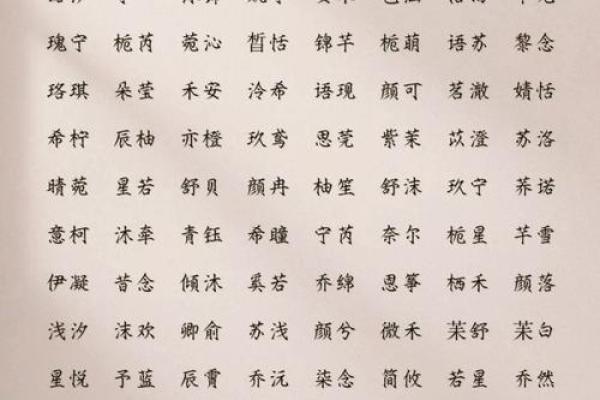 瑰宁 栀芮 菀沁 皙恬 锦芊 栀萌 语苏 黎念
珞琪 朵莹 禾安 泠希 语现 颜可 茗澈 婧恬
希柠 辰柚 亦橙 玖鸢 思莞 紫茉 苡澄 苏洛
晴菀 星若 舒贝 颜冉 柚笙 舒沫 玖宁 荞诺
意柯 沐牵 青钰 希瞳 宁芮 奈尔 栀星 芊雪
伊凝 昔念 倾沐 奚若 乔绵 恩筝 栖禾 颜落
浅汐 沫欢 卿俞 苏浅 颜兮 微禾 茉舒 茉白
星悦 予蓝 辰霄 乔沅 柒念 简攸 若星 乔然